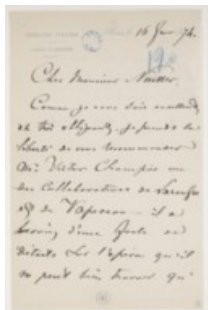 16 Jan 74.
Cher Monsieur Nuitter.
Comme je vous sais excellent
et très obligeant, je prends la
liberté de vous recommander
Mr. Victor Champier un
des Collaborateurs de Larousse
et de Vapereau — il a
besoin d'une foule de
détails sur l'Opéra qu'il
ne peut bien trouver qu'